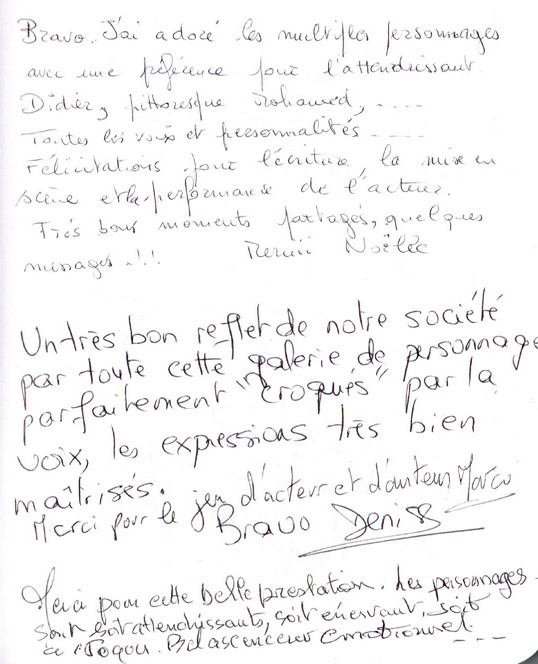 Bravo. J'ai adoré les multiples personnages
avec une préférence pour l'attendrissant
Didier, pittoresque Mohamed, ....
Toutes les voix et personnalités ....
Félicitations pour l'écriture, la mise en
scène et la performance de l'acteur.
Très bons moments partagés, quelques
messages .!!! Noëlle
Un très bon reflet de notre société
par toute cette galerie de personnage
parfaitement "croqués" par la
voix, les expressions très bien
maîtrisés.
Merci pour le jeu d'acteur et d'auteur Marco
Bravo Denis
Merci pour cette belle prestation. Les personnages
sont soit attendrissants, soit énervant, soit
. Bel ascenceur emotionnel. ---